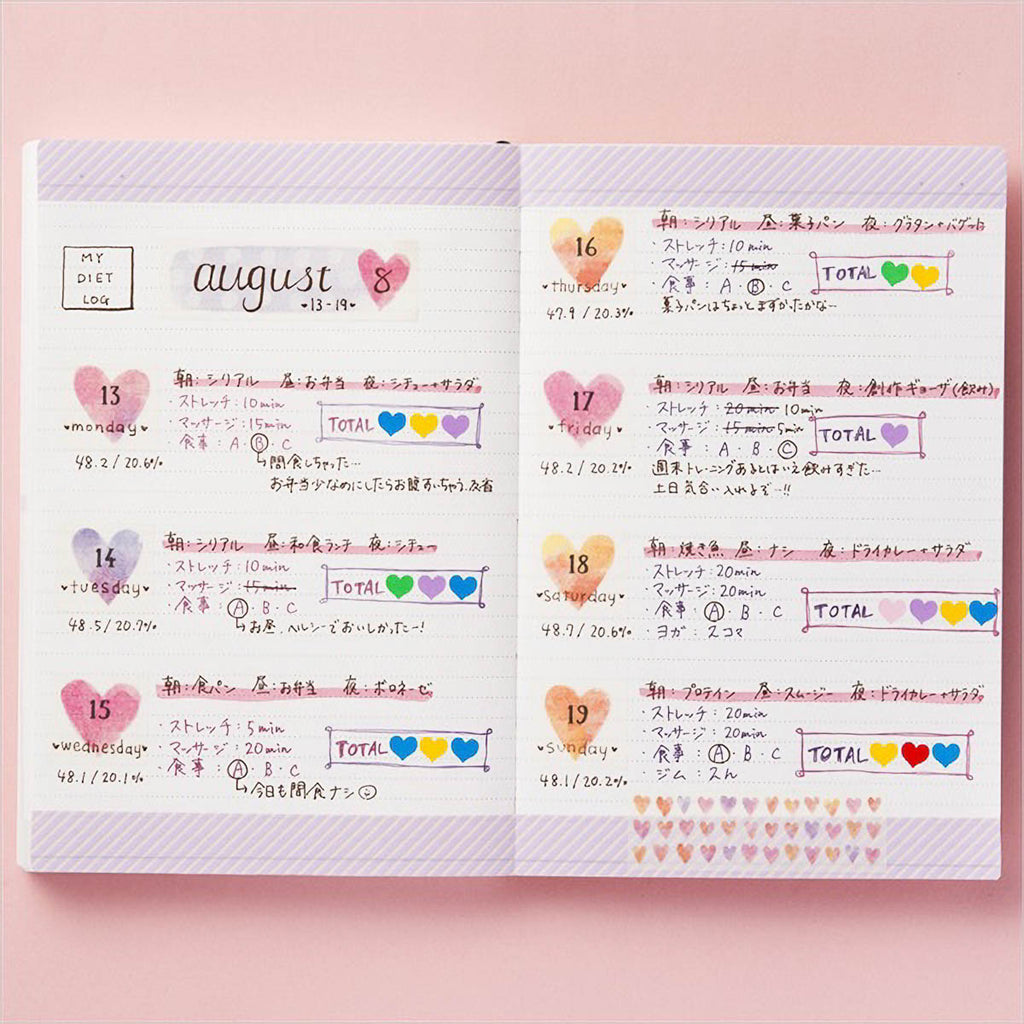 MY
DIET
LOG
august 8
♥13-19♥
13
♥monday♥
48.2/20.6%
朝:シリアル 昼:お弁当 夜:シチュー+サラダ
・ストレッチ:10min
・マッサージ:15min
・食事:A・B・C
TOTAL
↳間食しちゃった…
お弁当少なめにしたらお腹すいちゃう。反省
14
♥tuesday♥
48.5/20.7%
朝:シリアル 昼:和食ランチ 夜:シチュー
・ストレッチ:10min
・マッサージ:15min
・食事:A・B・C
TOTAL
↳お昼、ヘルシーでおいしかったー!
15
♥wednesday♥
48.1/20.1%
朝:食パン 昼:お弁当 夜:ボロネーゼ
・ストレッチ:5min
・マッサージ:20min
・食事:A・B・C
TOTAL
↳今日も間食ナシ☺
16
♥thursday♥
47.9/20.3%
朝:シリアル 昼:菓子パン 夜:グラタン+バゲット
・ストレッチ:10min
・マッサージ:15min
・食事:A・B・C
TOTAL
菓子パンはちょっとまずかったかな…
17
♥friday♥
48.2/20.2%
朝:シリアル 昼:お弁当 夜:創作ギョーザ(飲み)
・ストレッチ:20min 10min
・マッサージ:15min 5min
・食事:A・B・C
TOTAL
週末トレーニングあるとはいえ飲みすぎた…
土日気合い入れるぞ…!!
18
♥saturday♥
48.7/20.6%
朝:焼き魚 昼:ナシ 夜:ドライカレー+サラダ
・ストレッチ:20min
・マッサージ:20min
・食事:A・B・C
・ヨガ:2コマ
TOTAL
19
♥sunday♥
48.1/20.2%
朝:プロテイン 昼:スムージー 夜:ドライカレー+サラダ
・ストレッチ:20min
・マッサージ:20min
・食事:A・B・C
・ジム:2h
TOTAL